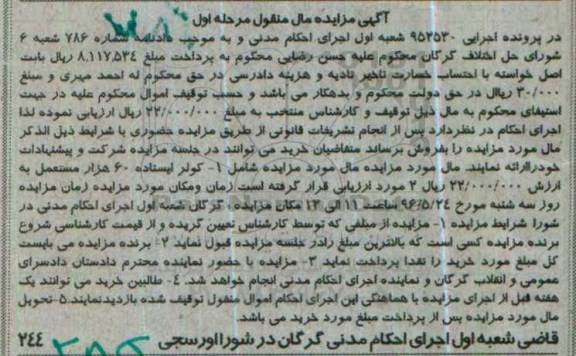 آگهی مزایده مال منقول مرحله اول
در پرونده اجرایی ۹۵۲۵۳۰ شعبه اول اجرای احکام مدنی و به موجب دادنامه شماره ۷۸۶ شعبه ۶
شورای حل اختلاف گرگان محکوم علیه حسن رضایی محکوم به پرداخت مبلغ ۸,۱۱۷,۵۳۴ ریال بابت
اصل خواسته با احتساب خسارت تاخیر تادیه و هزینه دادرسی در حق محکوم له احمد میری و مبلغ
۳۰/۰۰۰ ریال در حق دولت محکوم / بدهکار می باشد و حسب توقیف اموال محکوم علیه در جهت
استیفای محکوم به مال ذیل توقیف و کارشناس منتخب به مبلغ ۲۲/۰۰۰/۰۰۰ ریال ارزیابی نموده لذا
اجرای احکام در نظردارد پس از انجام تشریفات قانونی از طریق مزایده حضوری با شرایط ذیل الذکر
مال مورد مزایده را بفروش برساند متقاضیان خرید می توانند در جلسه مزایده شرکت و پیشنهادات
خودراارائه نمایند. مال مورد مزایده مال مورد مزایده شامل ۱- کولر ایستاده ۶۰ هزار مستعمل به
ارزش ۲۲/۰۰۰/۰۰۰ ریال ۲ مورد ارزیابی قرار گرفته است زمان ومکان مورد مزایده زمان مزایده
روز سه شنبه مورخ ۹۶/۵/۲۴ ساعت ۱۱ الی ۱۲ مکان مزایده ، گرگان شعبه اول اجرای احکام مدنی در
شورا شرایط مزایده ۱- مزایده از مبلغی که توسط کارشناس تعیین گریده و از قیمت کارشناسی شروع
برنده مزایده کسی است که بالاترین مبلغ رادر جلسه مزایده قبول نماید ۲- برنده مزایده می بایست
کل مبلغ مورد خرید را نقدا پرداخت نماید ۳- مزایده با حضور نماینده محترم دادستان دادسرای
عمومی و انقلاب گرگان و نماینده اجرای احکام مدنی انجام خواهد شد. ٤- طالبین خرید می توانند یک
هفته قبل از اجرای مزایده با هماهنگی این اجرای احکام اموال منقول توقیف شده بازدیدنمایند.۵-تحویل
مال مورد مزایده پس از پرداخت مبلغ مورد خرید می باشد.
قاضی شعبه اول اجرای احکام مدنی گرگان در شورا اورسجی ۲٤٤